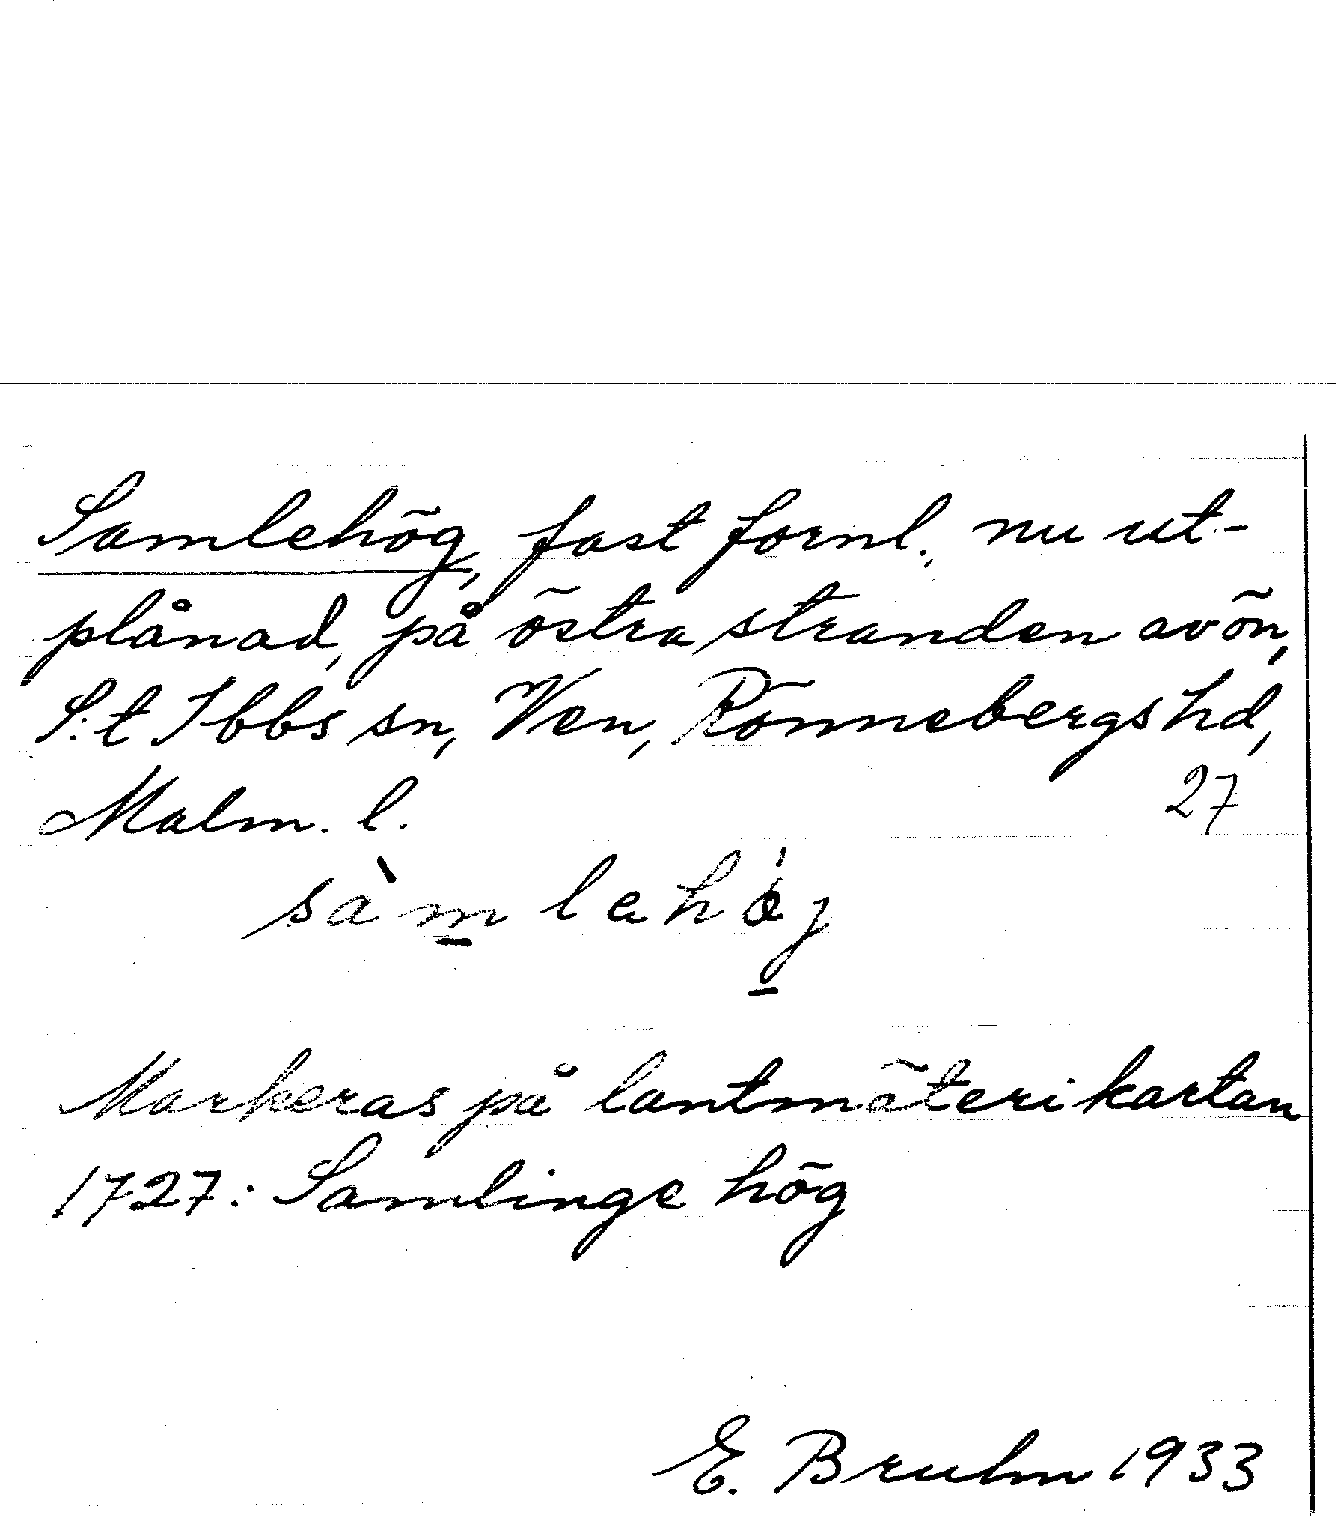 Samlehög, fast fornl., nu ut-
plånad, på östra stranden av ön,
S:t Ibbs sn, Ven, Rönnebergs hd,
Malm. l. 27
sàm̱lehö́j
Markeras på lantmäterikartan
1727: Samlinge hög
E. Bruhn 1933